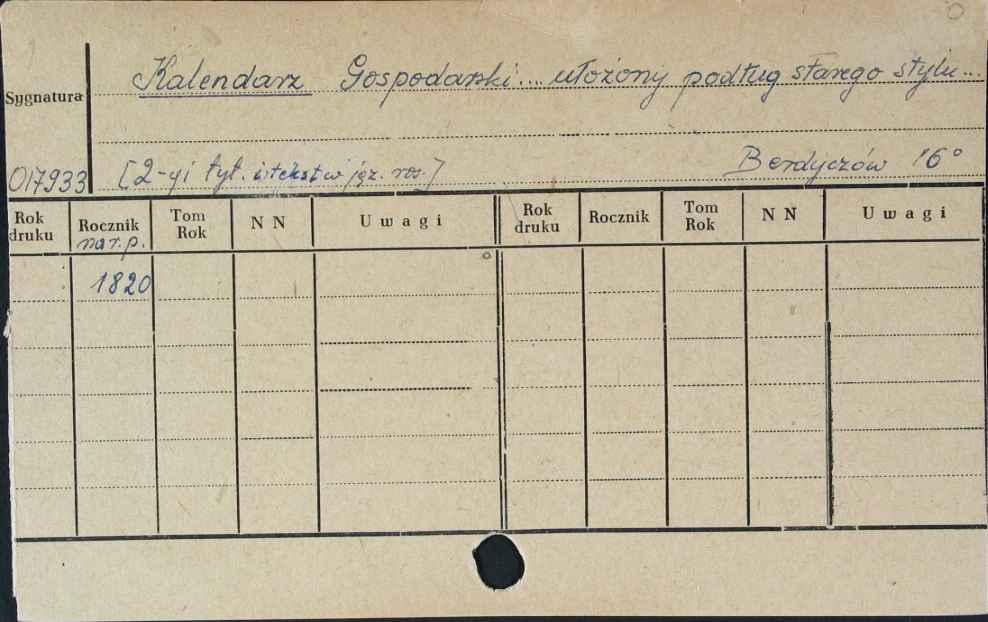 Kalendarz Gospodarski... ułożony podług starego stylu...
Sygnatura
017933 [2-gi tyt. i tekst w jęz. ros.] Berdyczów 16°
Rok druku Rocznik Tom Rok N N Uwagi Rok druku Rocznik Tom Rok N N Uwagi
na r. p.
1820